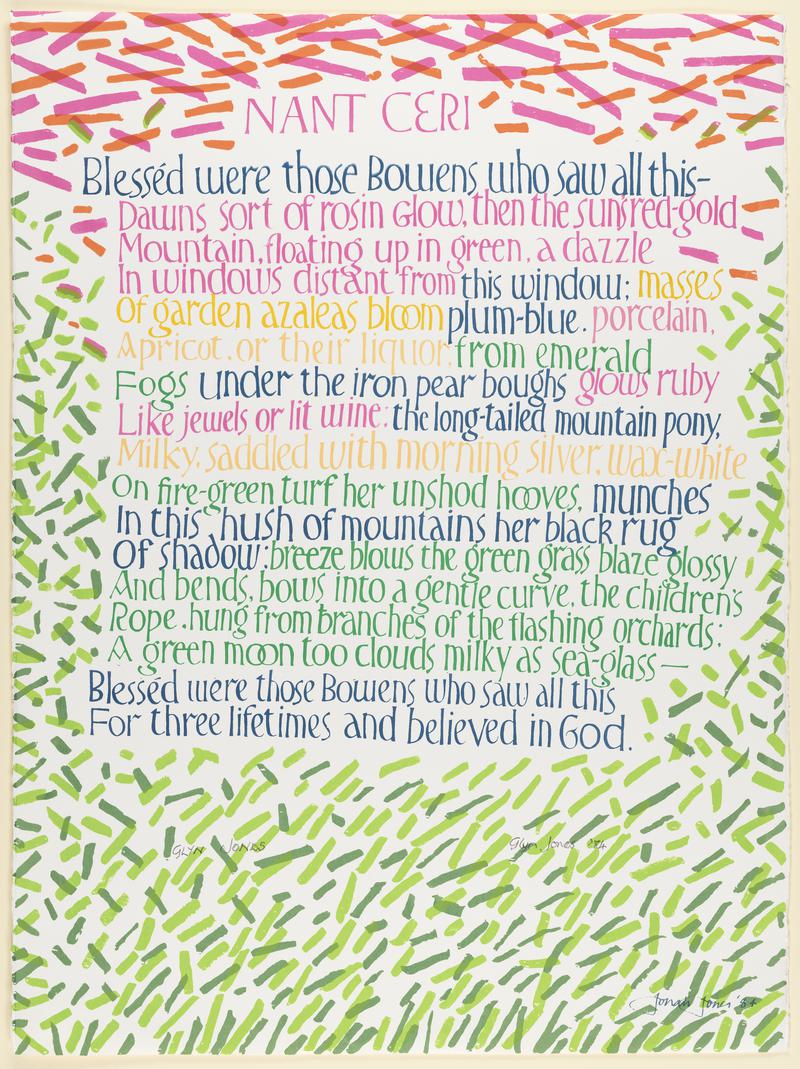 NANT CERI
Blesséd were those Bowens who saw all this–
Dawns sort of rosin glow, then the sun's red-gold
Mountain, floating up in green, a dazzle
In windows distant from this window; masses
Of garden azaleas bloom plum-blue, porcelain,
Apricot, or their liquor; from emerald
Fogs under the iron pear boughs glows ruby
Like jewels or lit wine; the long-tailed mountain pony,
Milky, saddled with morning silver, wax-white
On fire-green turf her unshod hooves, munches
In this hush of mountains her black rug
Of shadow; breeze blows the green grass blaze glossy
And bends, bows into a gentle curve, the children's
Rope, hung from branches of the flashing orchards;
A green moon too clouds milky as sea-glass—
Blesséd were those Bowens who saw all this
For three lifetimes and believed in God.
GLYN JONES Glyn Jones '84
Jonah Jones '84